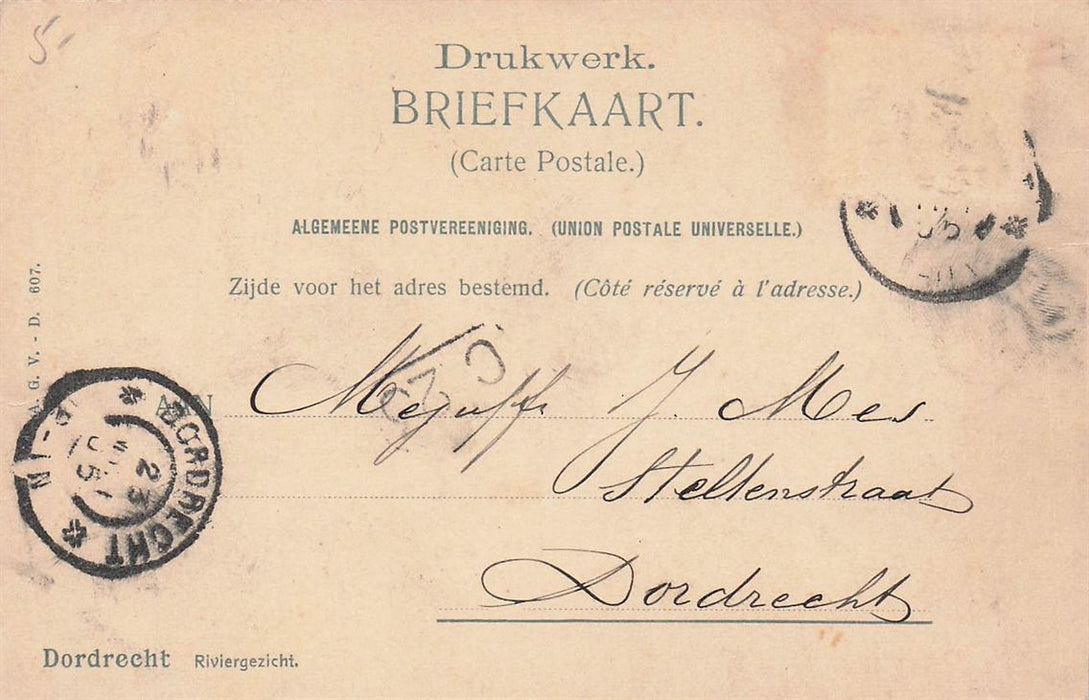 5-
Drukwerk.
BRIEFKAART.
(Carte Postale.)
ALGEMEENE POSTVEREENIGING. (UNION POSTALE UNIVERSELLE.)
Zijde voor het adres bestemd. (Côté réservé à l'adresse.)
G. V. - D. 607.
AAN Mejuffr J. Mes
Steltenstraat
Dordrecht
DORDRECHT
23
05
Dordrecht Riviergezicht.